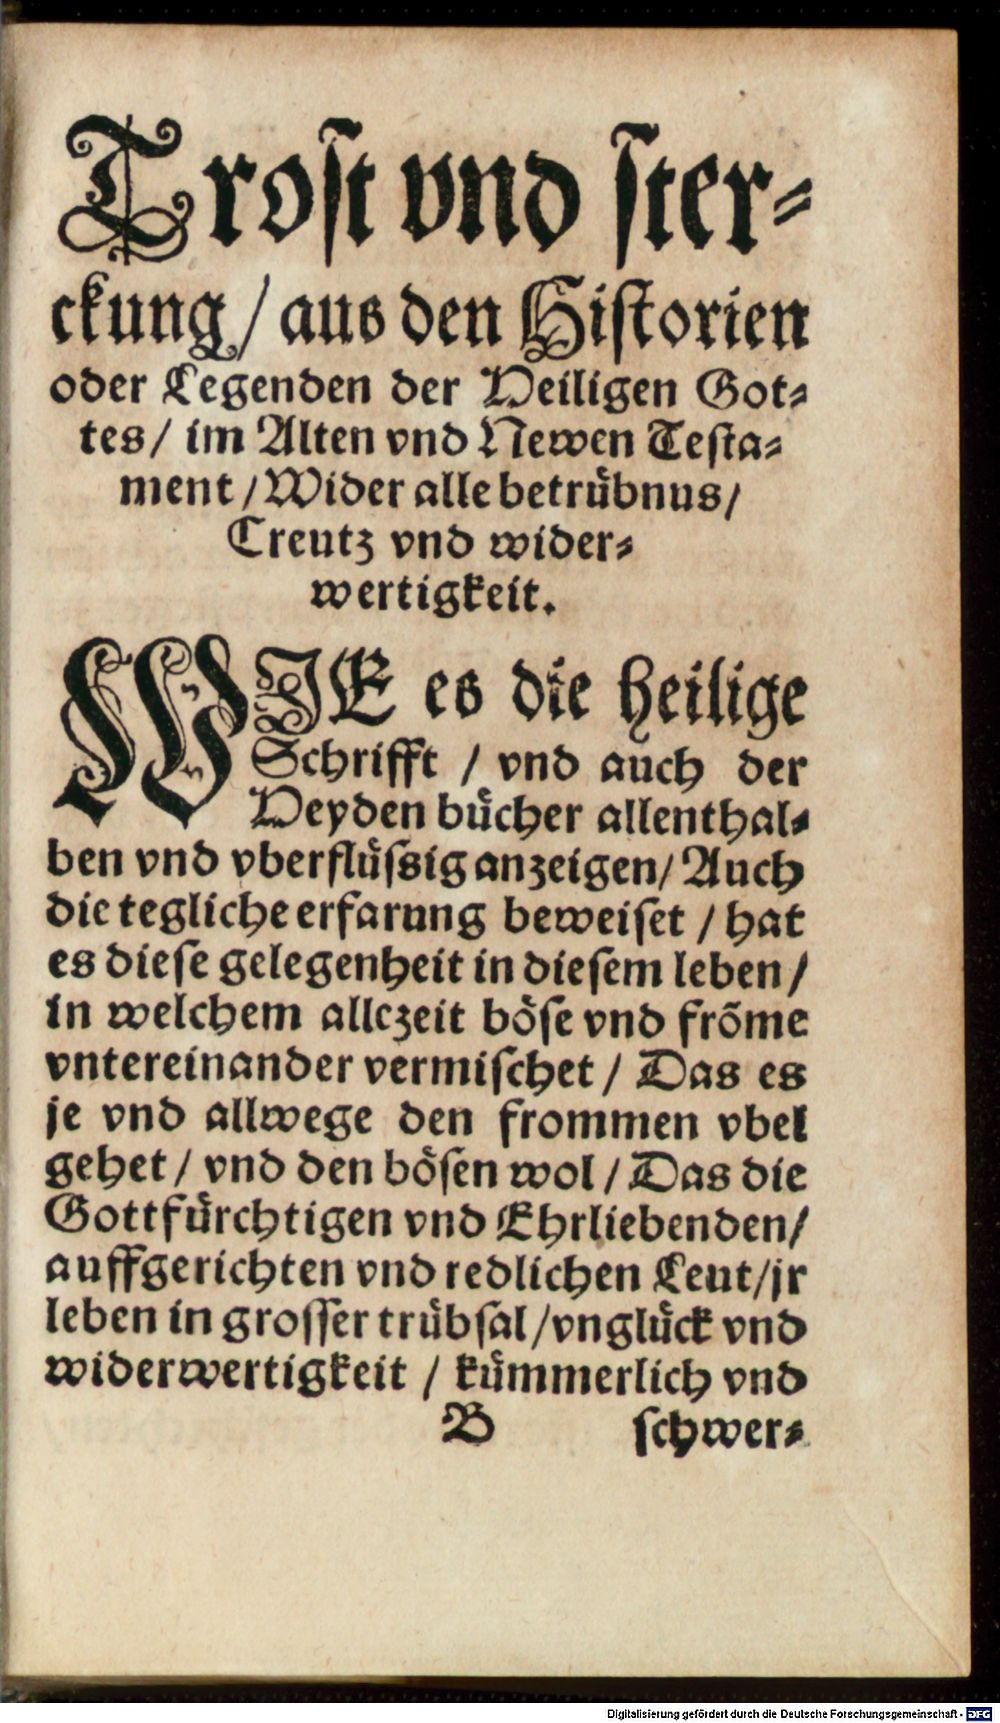 Trost vnd ster-
ckung / aus den Historien
oder Legenden der Heiligen Got-
tes / im Alten vnd Newen Testa-
ment / Wider alle betrübnus /
Creutz vnd wider-
wertigkeit.
WIE es die heilige
Schrifft / vnd auch der
Heyden bücher allenthal-
ben vnd vberflüssig anzeigen / Auch
die tegliche erfarung beweiset / hat
es diese gelegenheit in diesem leben /
in welchem allezeit böse vnd frõme
vntereinander vermischet / Das es
je vnd allwege den frommen vbel
gehet / vnd den bösen wol / Das die
Gottfürchtigen vnd Ehrliebenden /
auffgerichten vnd redlichen Leut / jr
leben in grosser trübsal / vnglück vnd
widerwertigkeit / kümmerlich vnd
B schwer-
Digitalisierung gefördert durch die Deutsche Forschungsgemeinschaft - DFG